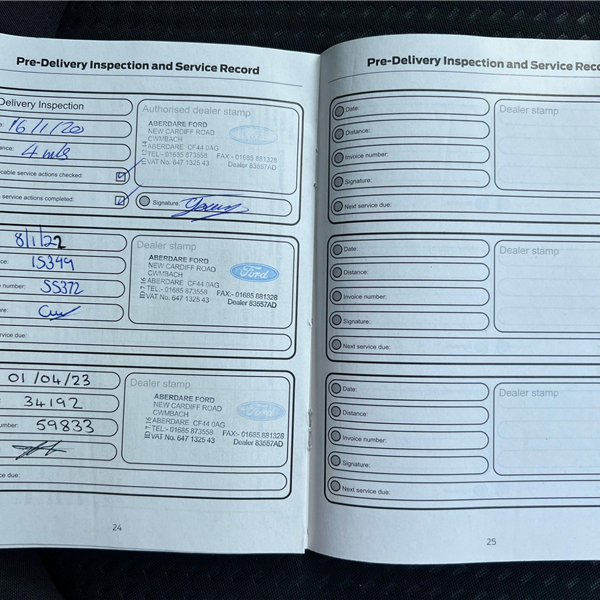 Pre-Delivery Inspection and Service Record
Delivery Inspection
16/1/20
4 mls
cable service actions checked:
service actions completed:
Authorised dealer stamp
ABERDARE FORD
NEW CARDIFF ROAD
CWMBACH
ABERDARE CF44 0AG
TEL:- 01685 873558 FAX:- 01685 881328
VAT No. 647 1325 43 Dealer 83557AD
Ford
Signature:
8/1/22
15399
number: SS372
service due:
Dealer stamp
ABERDARE FORD
NEW CARDIFF ROAD
CWMBACH
ABERDARE CF44 0AG
TEL:- 01685 873558 FAX:- 01685 881328
VAT No. 647 1325 43 Dealer 83557AD
Ford
01/04/23
34192
number: 59833
service due:
Dealer stamp
ABERDARE FORD
NEW CARDIFF ROAD
CWMBACH
ABERDARE CF44 0AG
TEL:- 01685 873558 FAX:- 01685 881328
VAT No. 647 1325 43 Dealer 83557AD
Ford
24
Pre-Delivery Inspection and Service Reco
Date:
Distance:
Invoice number:
Signature:
Next service due:
Dealer stamp
Date:
Distance:
Invoice number:
Signature:
Next service due:
Dealer stamp
Date:
Distance:
Invoice number:
Signature:
Next service due:
Dealer stamp
25